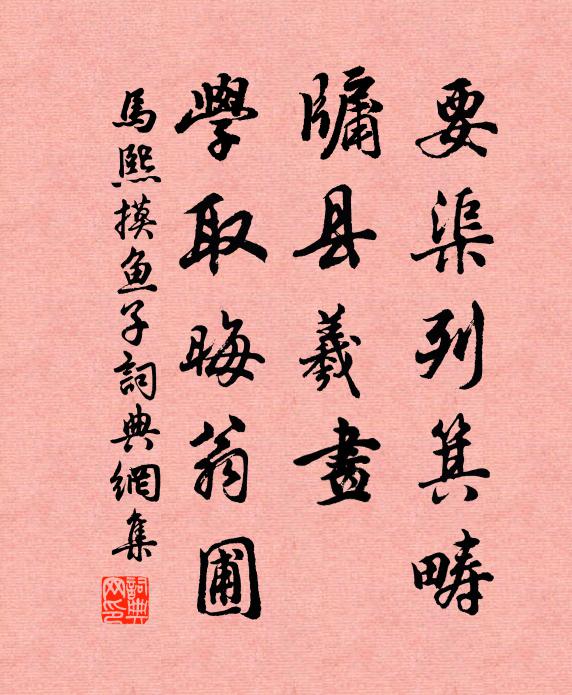 要渠列箕畴
牖县羲畫
學取晦翁圃
馬熙摸鱼子詞典網集
詞典网印